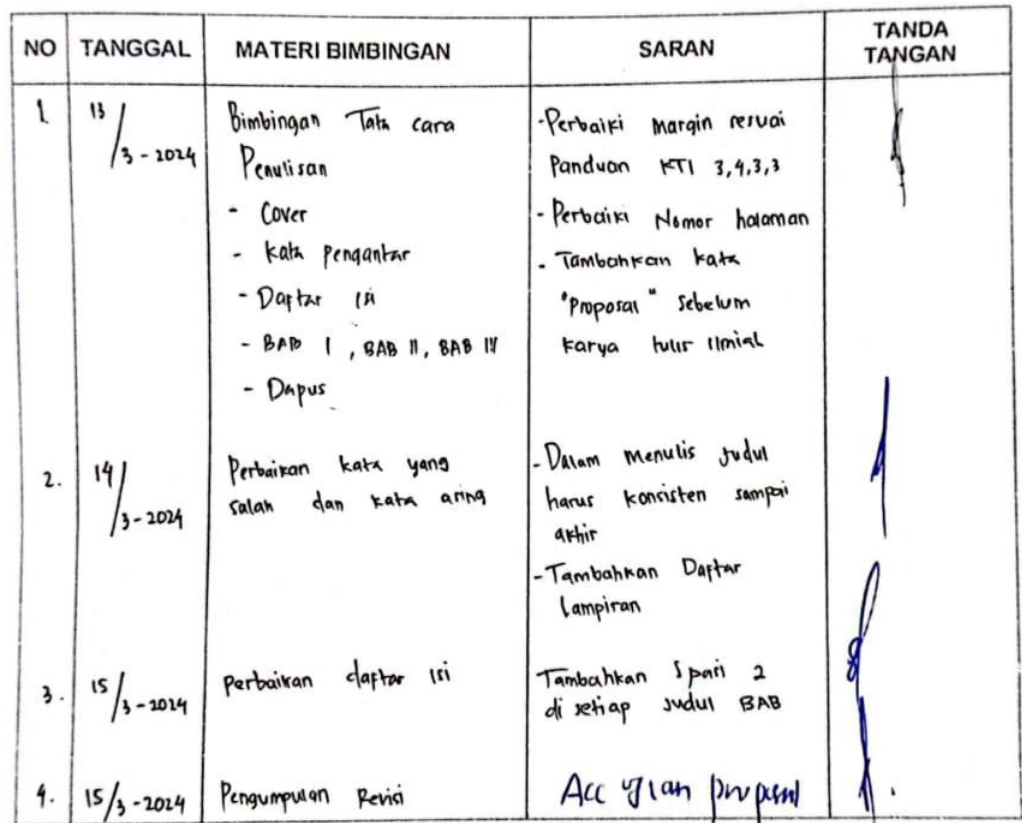 NO TANGGAL MATERI BIMBINGAN SARAN TANDA TANGAN
1. 13/3-2024
Bimbingan Tata cara
Penulisan
- Cover
- Kata Pengantar
- Daftar isi
- BAB I, BAB II, BAB IV
- Dapus
-Perbaiki margin sesuai
Panduan KTI 3,4,3,3
- Perbaiki Nomor halaman
- Tambahkan kata
"Proposal" sebelum
karya tulis ilmiah
2. 14/3-2024
Perbaikan kata yang
salah dan kata asing
- Dalam menulis judul
harus konsisten sampai
akhir
- Tambahkan Daftar
lampiran
3. 15/3-2024
perbaikan daftar isi
Tambahkan Spasi 2
di setiap judul BAB
4. 15/3-2024
Pengumpulan Revisi
Acc ujian proposal